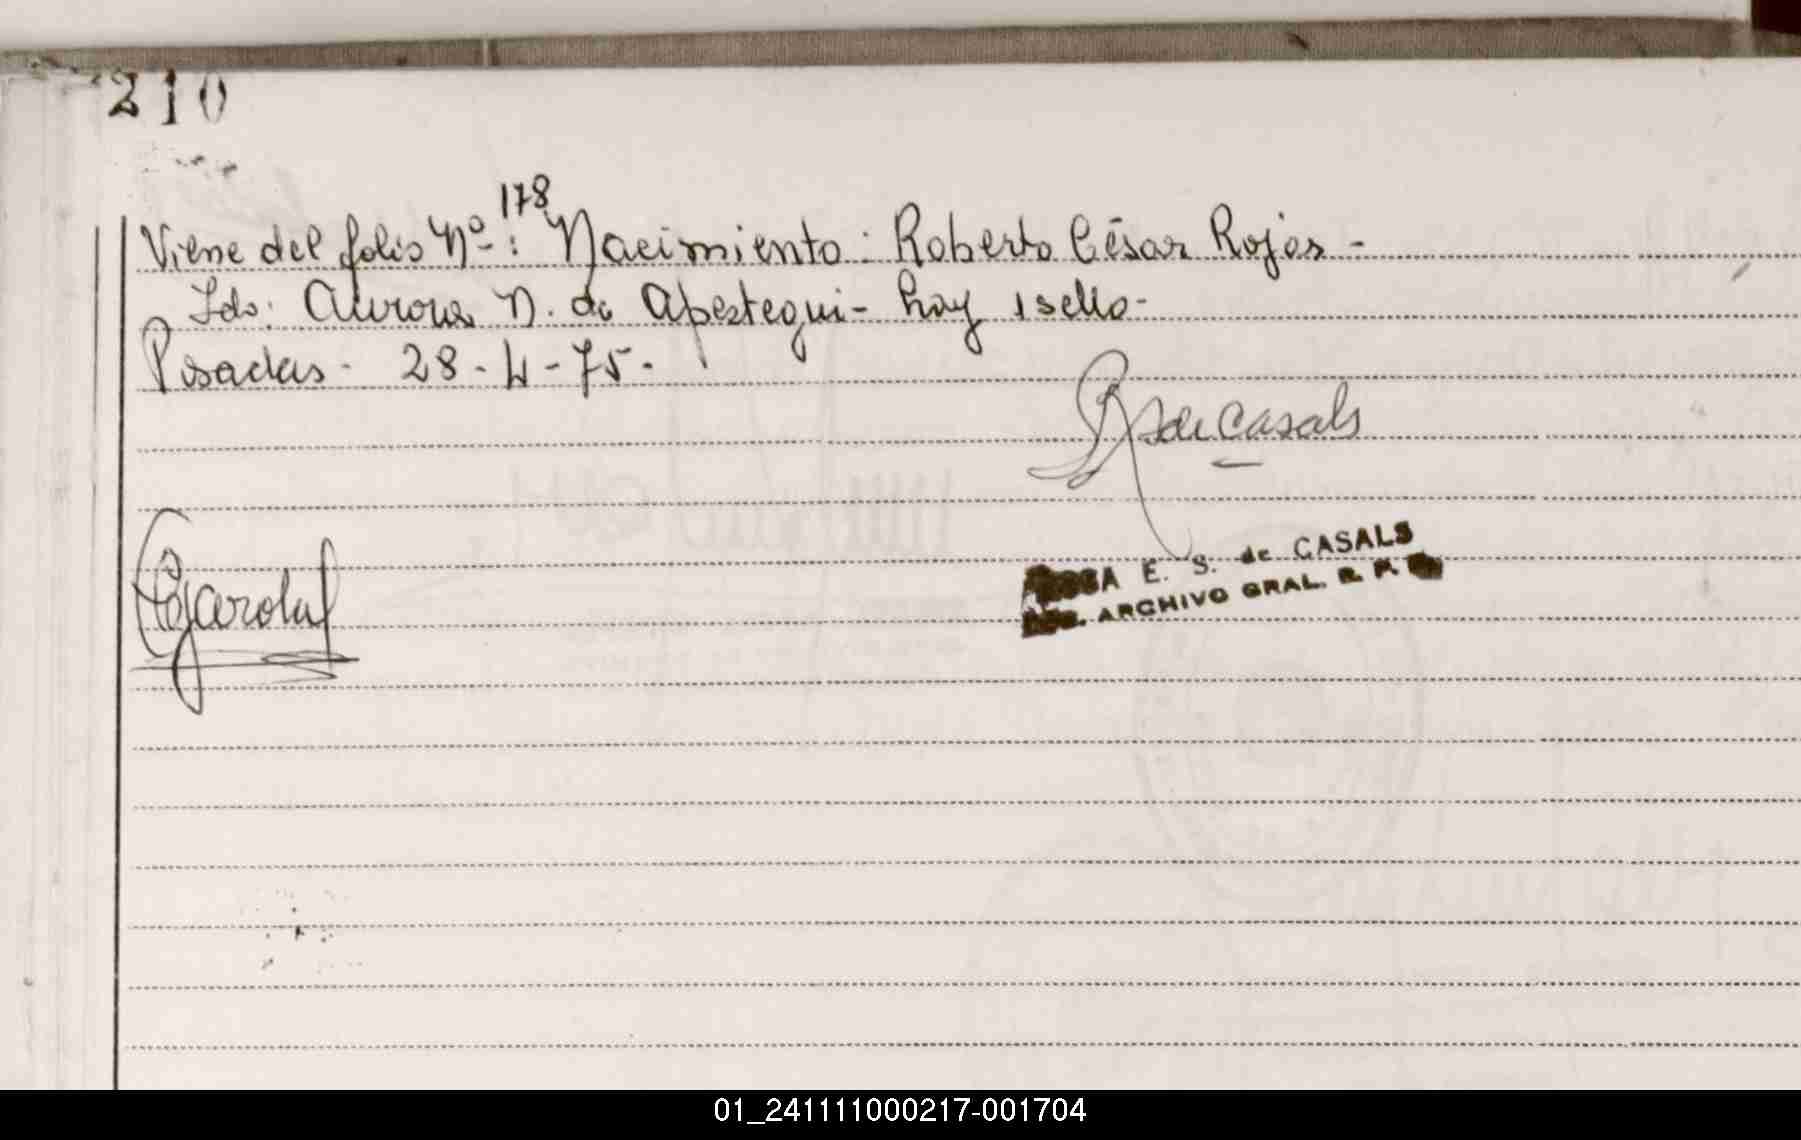 210
Viene del folio Nº 178: Nacimiento: Roberto César Rojas -
Fdo: Aurora N. de Apestegui - hay 1 sello -
Posadas - 28 - 4 - 75 -
de Casals
E. S. de CASALS
ARCHIVO GRAL. R. P.
01_241111000217-001704